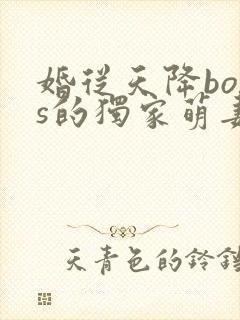 婚從天降bos
s的獨家萌妻
天青色的鈴鐺